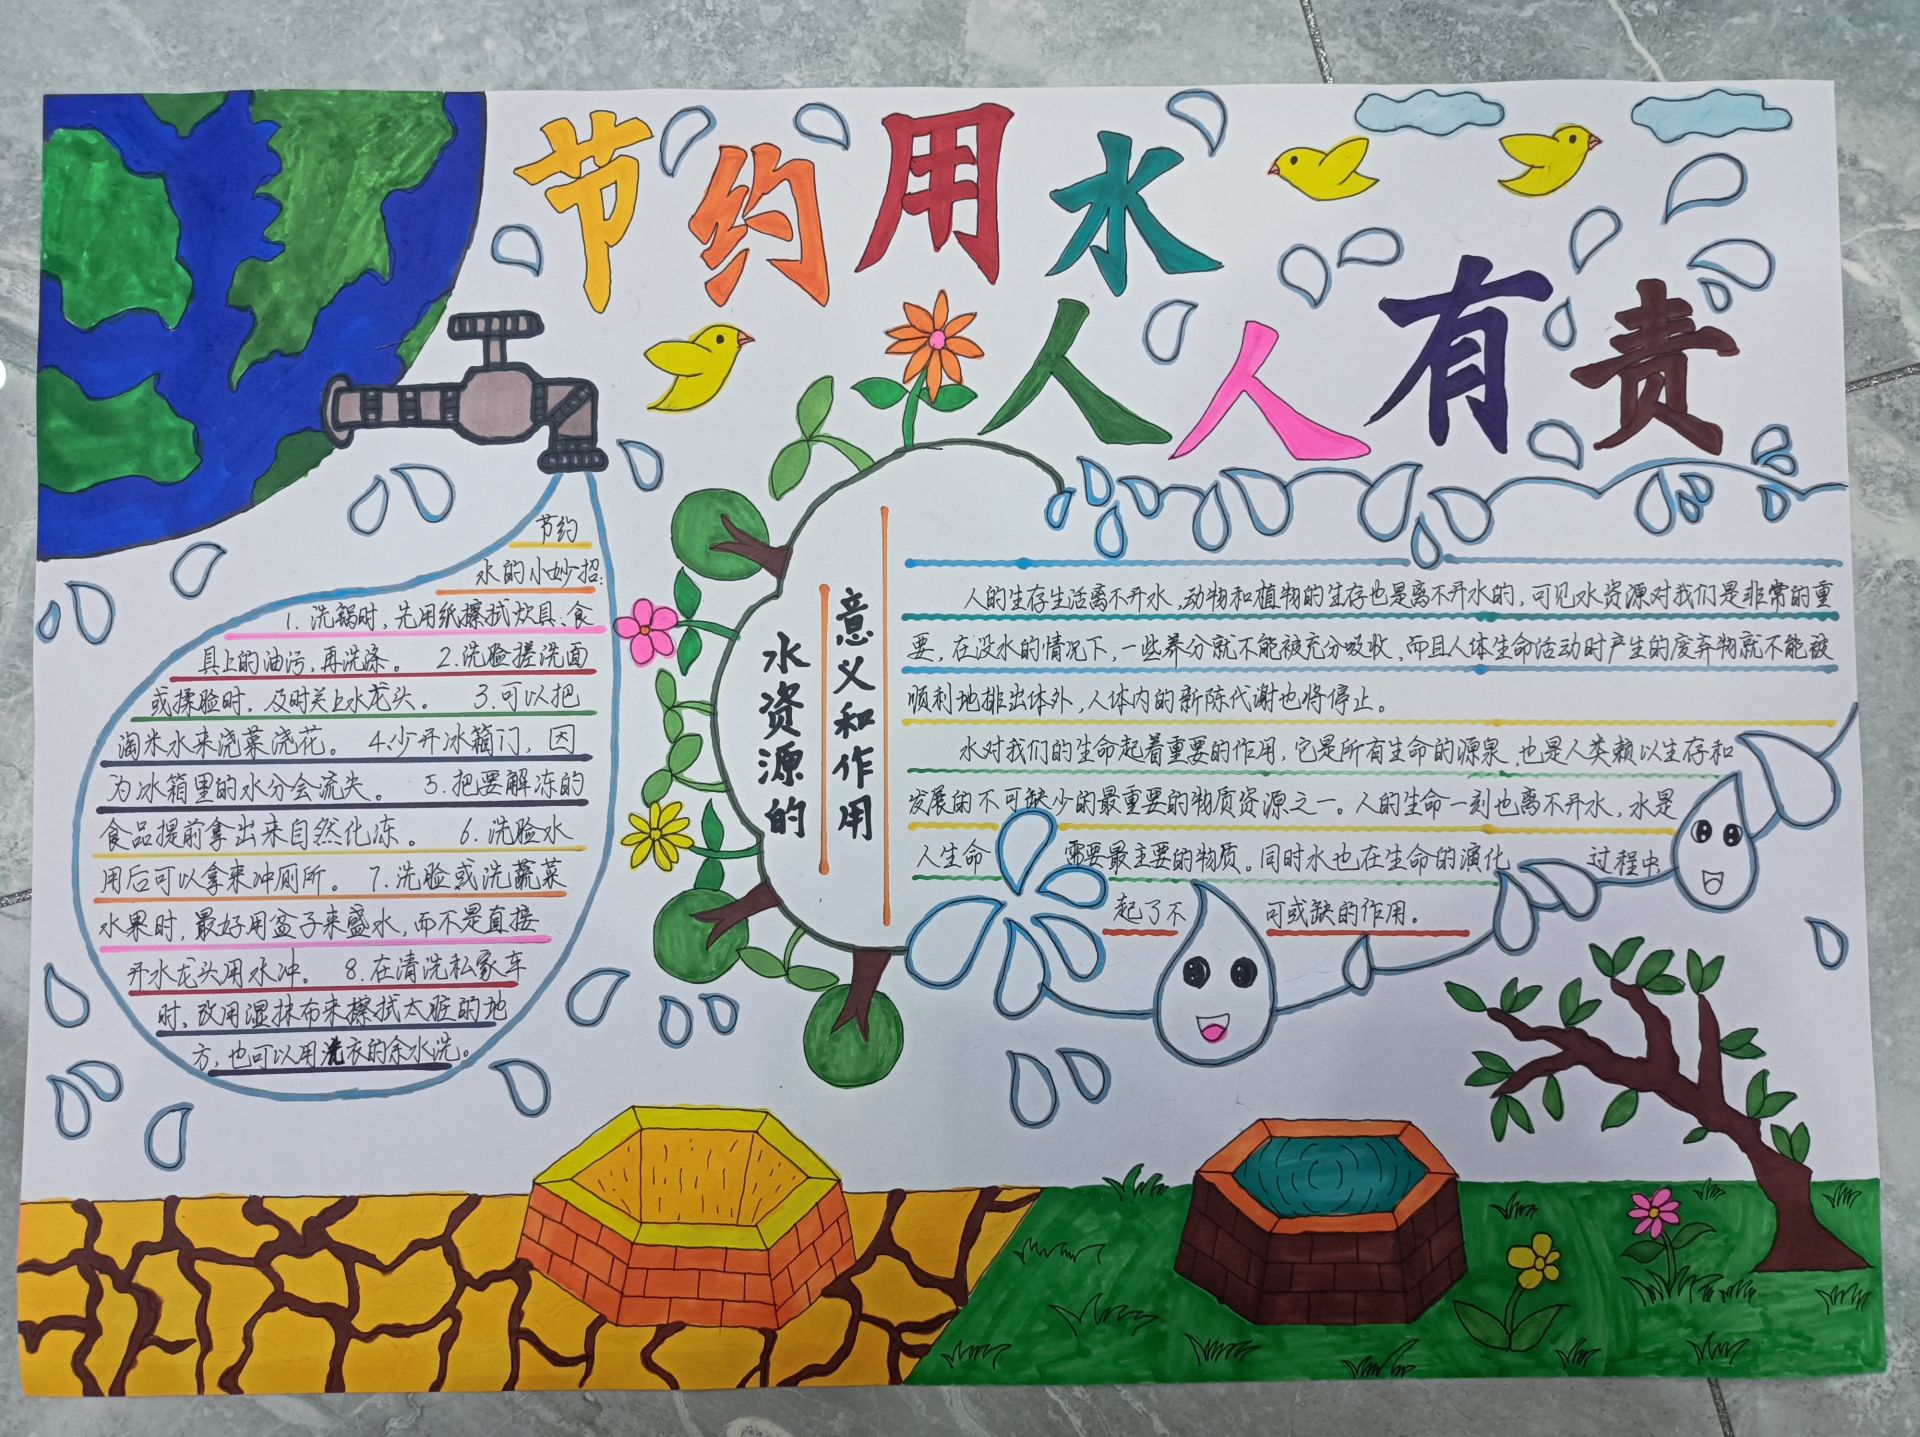 节约用水
人人有责
节约
水的小妙招:
1. 洗锅时，先用纸擦拭炊具、食
具上的油污，再洗涤。 2.洗脸搓洗面
或揉脸时，及时关上水龙头。 3.可以把
淘米水来浇菜浇花。 4.少开冰箱门，因
为冰箱里的水分会流失。 5.把要解冻的
食品提前拿出来自然化冻。 6.洗脸水
用后可以拿来冲厕所。 7.洗脸或洗蔬菜
水果时，最好用盆子来盛水，而不是直接
开水龙头用水冲。 8.在清洗私家车
时，改用湿抹布来擦拭太脏的地
方，也可以用洗衣的余水洗。
水资源的
意义和作用
人的生存生活离不开水，动物和植物的生存也是离不开水的，可见水资源对我们是非常的重
要，在没水的情况下，一些养分就不能被充分吸收，而且人体生命活动时产生的废弃物就不能被
顺利地排出体外，人体内的新陈代谢也将停止。
水对我们的生命起着重要的作用，它是所有生命的源泉，也是人类赖以生存和
发展的不可缺少的最重要的物质资源之一。人的生命一刻也离不开水，水是
人生命 需要最主要的物质。同时水也在生命的演化 过程中
起了不 可或缺的作用。